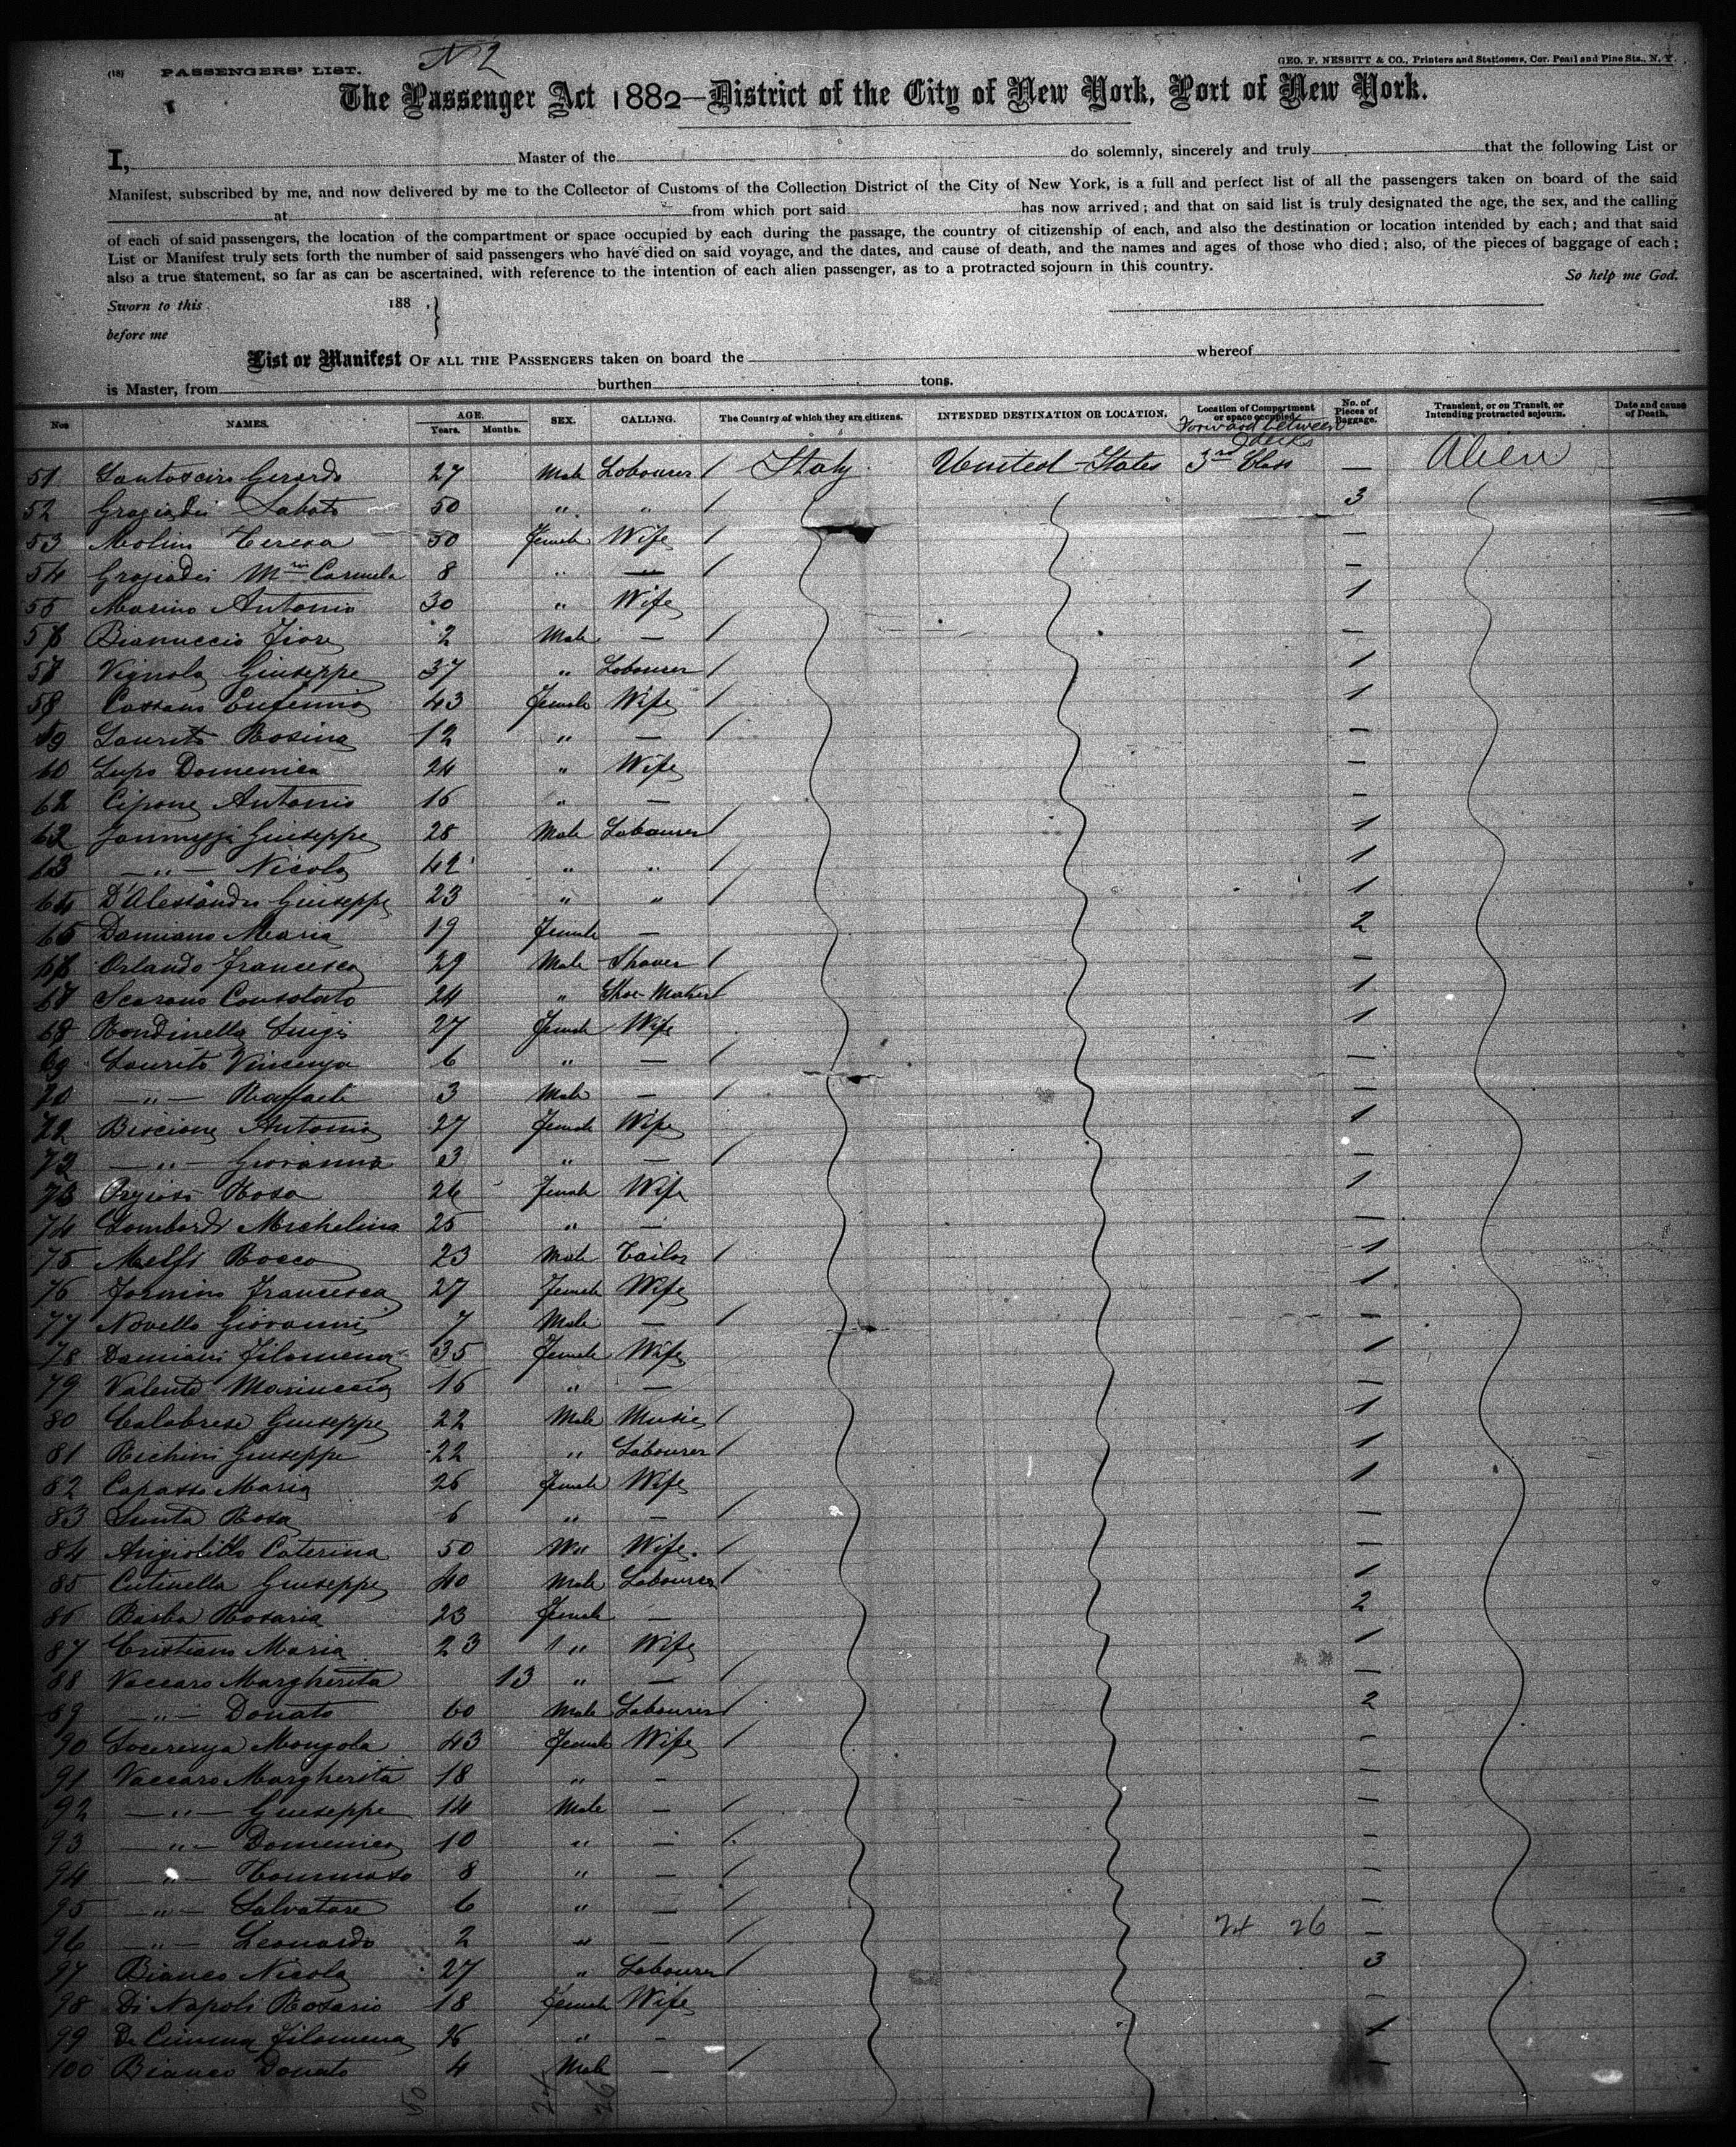 No 2
(18) PASSENGERS' LIST.
GEO. F. NESBITT & CO., Printers and Stationers, Cor. Pearl and Pine Sts., N. Y.
The Passenger Act 1882—District of the City of New York, Port of New York.
I, Master of the do solemnly, sincerely and truly that the following List or
Manifest, subscribed by me, and now delivered by me to the Collector of Customs of the Collection District of the City of New York, is a full and perfect list of all the passengers taken on board of the said
at from which port said has now arrived; and that on said list is truly designated the age, the sex, and the calling
of each of said passengers, the location of the compartment or space occupied by each during the passage, the country of citizenship of each, and also the destination or location intended by each; and that said
List or Manifest truly sets forth the number of said passengers who have died on said voyage, and the dates, and cause of death, and the names and ages of those who died; also, of the pieces of baggage of each;
also a true statement, so far as can be ascertained, with reference to the intention of each alien passenger, as to a protracted sojourn in this country. So help me God.
Sworn to this 188 .
before me
List or Manifest OF ALL THE PASSENGERS taken on board the whereof
is Master, from burthen tons.
Nos NAMES. AGE. Years. Months. SEX. CALLING. The Country of which they are citizens. INTENDED DESTINATION OR LOCATION. Location of Compartment or space occupied. No. of Pieces of Baggage. Transient, or on Transit, or Intending protracted sojourn. Date and cause of Death.
Forward between decks
51 Gerardo 27 Male Labourer / Italy United States 3rd Class — Alien
52 Sabato 50 " " / 3
53 Molino Teresa 50 Female Wife / —
54 Carmela 8 " — / —
55 Masino Antonia 30 " Wife 1
56 Fiore 2 Male — / —
57 Vignola Giuseppe 37 " Labourer / 1
58 Cassano Eufemia 43 Female Wife / 1
59 Laurito Rosina 12 " — / —
60 Lupo Domenica 24 " Wife —
62 Cipone Antonio 16 " — —
62 Giuseppe 28 Male Labourer / 1
63 —"— Nicola 42 " " / 1
64 D'Alessandro Giuseppe 23 " " / 1
65 Damiano Maria 19 Female — 2
66 Orlando Francesco 29 Male Shaver / —
67 Scarano Consolato 24 " Shoe-Maker / 1
68 Rondinella Luigi 27 Female Wife 1
69 Laurito Vincenza 6 " — / —
70 —"— Raffaele 3 Male — / —
72 Biscione Antonia 27 Female Wife 1
72 —"— Giovanna 3 " — / —
73 Rosa 26 Female Wife 1
74 Lombardi Michelina 25 " — —
75 Melfi Rocco 23 Male Tailor / 1
76 Francesca 27 Female Wife 1
77 Novello Giovanni 7 Male — / —
78 Damiani Filomena 35 Female Wife 1
79 Valente Mariuccia 16 " — —
80 Calabrese Giuseppe 22 Male Music / 1
81 Richini Giuseppe 22 " Labourer / 1
82 Capasso Maria 26 Female Wife 1
83 Rosa 6 " — / —
84 Angiolillo Caterina 50 Wife. / —
85 Cutinella Giuseppe 40 Male Labourer / 1
86 Barba Rosaria 23 Female — 2
87 Cristiano Maria 23 " Wife 1
88 Vaccaro Margherita 13 " — / —
89 —"— Donato 60 Male Labourer / 2
90 Mongola 43 Female Wife / —
91 Vaccaro Margherita 18 " — —
92 —"— Giuseppe 14 Male — / —
93 —"— Domenico 10 " — / —
94 —"— Tommaso 8 " — / —
95 —"— Salvatore 6 " — / —
24 26
96 —"— Leonardo 2 " — / —
97 Bianco Nicola 27 " Labourer / 3
98 Di Napoli Rosario 18 Female Wife —
99 Filomena 26 " — 1
100 Bianco Donato 4 Male — / —
50 24 26